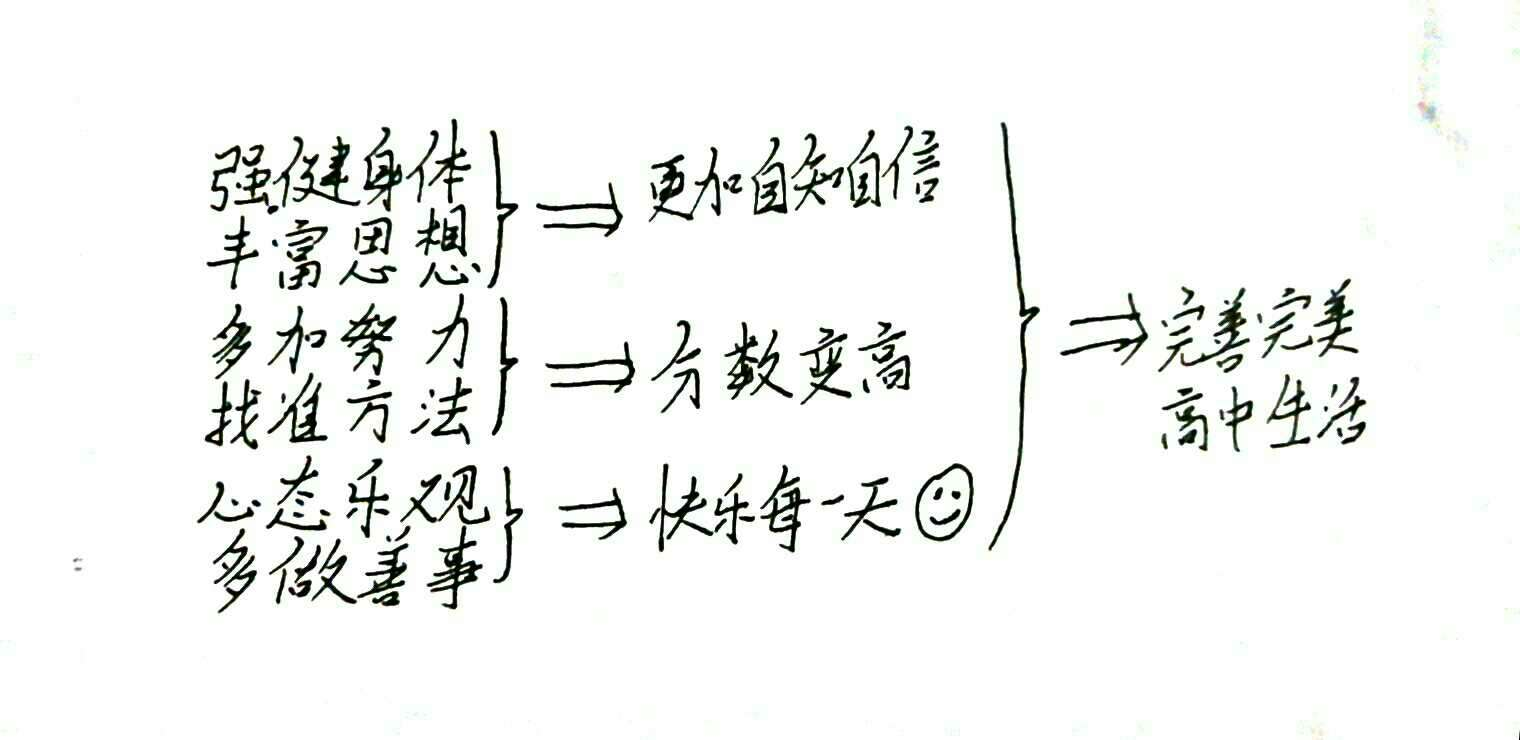 强健身体
丰富思想
更加自知自信
多加努力
找准方法
分数变高
心态乐观
多做善事
快乐每一天
完善完美
高中生活